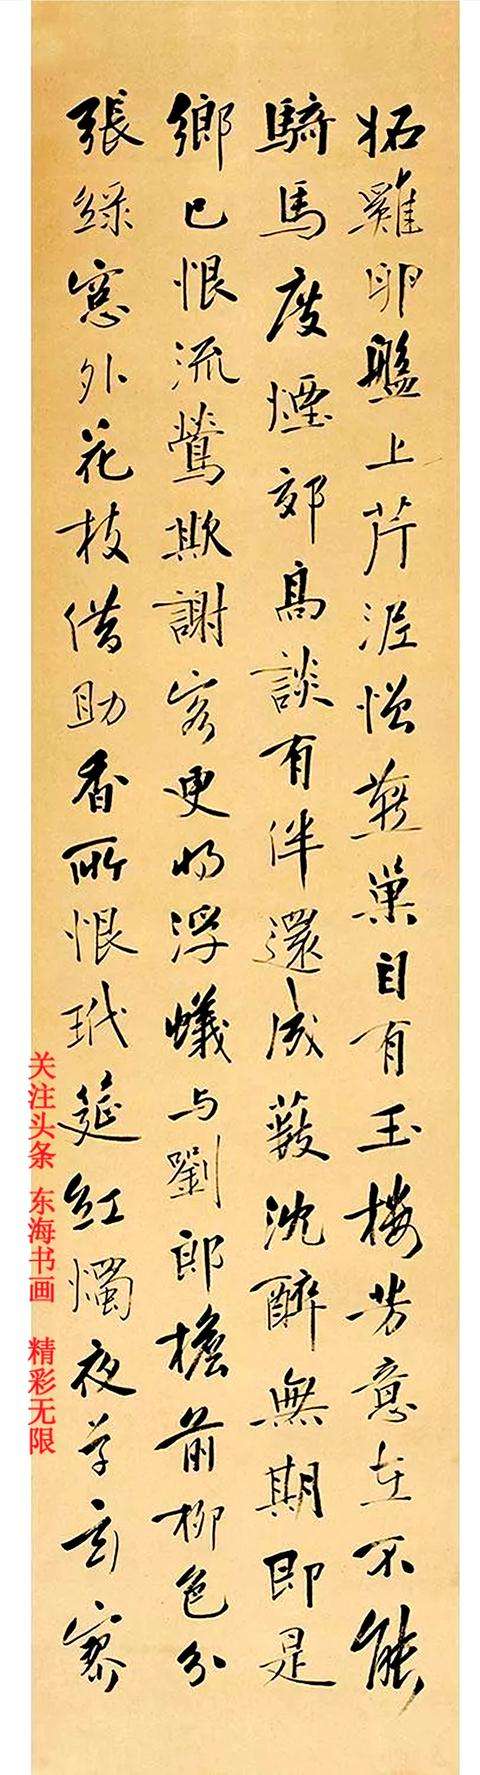 妬雞卵盤上芹泥憎燕巢自有玉樓芳意在不能
騎馬度煙郊高談有伴還成藪沈醉無期即是
鄉已恨流鶯欺謝客更將浮蟻與劉郎檐前柳色分
張綠窓外花枝借助香所恨玳筵紅燭夜草玄寥
关注头条 东海书画 精彩无限